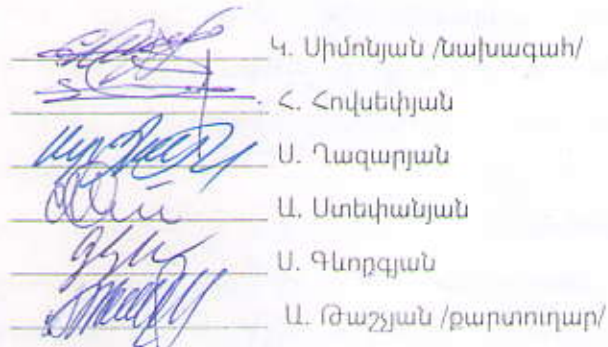 Կ. Սիմոնյան /նախագահ/
Հ. Հովսեփյան
Ս. Ղազարյան
Ա. Ստեփանյան
Ս. Գևորգյան
Ա. Թաշչյան /քարտուղար/